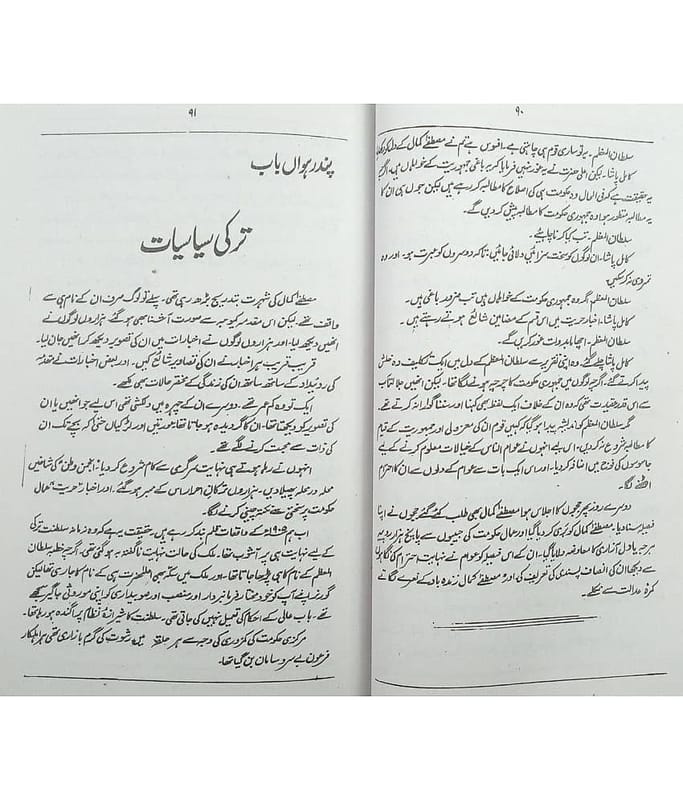 ۹۰
سلطان المعظم۔ یہ تو ساری قوم ہی چاہتی ہے۔ افسوس ہے تم نے مصطفےٰ کمال کے دل کو
کامل پاشا۔ لیکن اعلیٰ حضرت نے یہ غور نہیں فرمایا کہ یہ باغی جمہوریت کے خواہاں ہیں، اگرچہ
یہ حقیقت ہے کہ فی الحال وہ حکومت ہی کی اصلاح کا مطالبہ کر رہے ہیں لیکن جوں ہی ان کا
یہ مطالبہ منظور ہوا وہ جمہوری حکومت کا مطالبہ پیش کریں گے۔
سلطان المعظم۔ تب کیا کرنا چاہیئے۔
کامل پاشا۔ ان لوگوں کو سخت سزائیں دلائی جائیں، تاکہ دوسروں کو عبرت ہو۔ اور وہ
تمردی نہ کر سکیں
سلطان المعظم۔ اگر وہ جمہوری حکومت کے خواہاں ہیں تب ضرور باغی ہیں۔
کامل پاشا۔ اخبار حریت میں اس قسم کے مضامین شائع ہوتے رہتے ہیں۔
سلطان المعظم۔ اچھا ما بدولت غور کریں گے۔
کامل پاشا چلے گئے۔ وہ اپنی تقریر سے سلطان المعظم کے دل میں ایک تکلیف دہ خلش
پیدا کرتے گئے۔ اگرچہ لوگوں میں جمہوری حکومت کا چرچہ ہونے لگا تھا۔ لیکن انھیں جلالتمآب
سے اس قدر عقیدت تھی کہ وہ ان کے خلاف ایک لفظ بھی کہنا اور سننا گوارا نہ کرتے تھے۔
مگر سلطان المعظم کو اندیشہ پیدا ہو گیا کہ کہیں قوم ان کی معزولی اور جمہوریت کے قیام
کا مطالبہ شروع نہ کر دیں۔ اس لیے انہوں نے عوام الناس کے خیالات معلوم کرنے کے لیے
جاسوسوں کی فوج میں اضافہ کر دیا۔ اور اس ایک بات سے عوام کے دلوں سے ان کا احترام
اٹھنے لگا۔
دوسرے روز پھر ججوں کا اجلاس ہوا مصطفےٰ کمال بھی طلب کئے گئے ججوں نے اپنا
فیصلہ سنا دیا۔ مصطفےٰ کمال کو بری کر دیا گیا اور عمال حکومت کی جیبوں سے پانچ ہزار روپیہ
ہرجہ یا دل آزاری کا معاوضہ دلایا گیا۔ ان کے اس فیصلہ کو عوام نے نہایت احترام کی نگاہوں
سے دیکھا ان کی انصاف پسندی کی تعریف کی اور مصطفےٰ کمال زندہ باد کے نعرے لگاتے
کمرۂ عدالت سے نکلے۔
۹۱
پندرہواں باب
ترکی سیاسیات
مصطفےٰ کمال کی شہرت بتدریج بڑھ رہی تھی۔ پہلے تو لوگ صرف ان کے نام ہی سے
واقف تھے۔ لیکن اس مقدمہ کی وجہ سے صورت آشنا بھی ہو گئے ہزاروں لوگوں نے
انھیں دیکھ لیا۔ اور ہزاروں لوگوں نے اخبارات میں ان کی تصویر دیکھ کر انھیں جان لیا۔
قریب قریب ہر اخبار نے ان کی تصاویر شائع کیں۔ اور بعض اخبارات نے مقدمہ
کی روئیداد کے ساتھ ساتھ ان کی زندگی کے مختصر حالات بھی لکھے۔
ایک تو وہ کم عمر تھے۔ دوسرے ان کے چہرہ میں دلکشی تھی اس لیے جو انھیں یا ان
کی تصویر کو دیکھتا تھا۔ ان کا گرویدہ ہو جاتا تھا، عورتیں اور لڑکیاں حتیٰ کہ بچے تک ان
کی ذات سے محبت کرنے لگے تھے۔
انہوں نے رہا ہوتے ہی نہایت سرگرمی سے کام شروع کر دیا: انجمن وطن کی شاخیں
محلہ در محلہ پھیلا دیں۔ ہزاروں ترکان احرار اس کے ممبر ہو گئے، اور اخبار حریت عمال
حکومت پر سختی سے نکتہ چینی کرنے لگا۔
اب ہم ۱۹۰۵ء کے واقعات قلم بند کر رہے ہیں حقیقت یہ ہے کہ وہ زمانہ سلطنت ترکی
کے لیے نہایت ہی پر آشوب تھا۔ ملک کی حالت نہایت ناگفتہ بہ ہو گئی تھی۔ اگرچہ خطبہ سلطان
المعظم کے نام کا ہی پڑھا جاتا تھا۔ اور ملک میں سکہ بھی اعلیٰحضرت ہی کے نام کا جاری تھا لیکن
گورنر اپنے آپ کو خود مختار فرمانبردار اور منصب اور صوبیداری کو اپنی موروثی جاگیر سمجھے
تھے۔ باب عالی کے احکام کی تعمیل نہیں کی جاتی تھی۔ سلطنت کا شیرازۂ نظام پراگندہ ہو رہا تھا۔
مرکزی حکومت کی کمزوری کی وجہ سے ہر حلقہ میں رشوت کی گرم بازاری تھی ہر اہلکار
فرعون بے سر و سامان بن گیا تھا۔